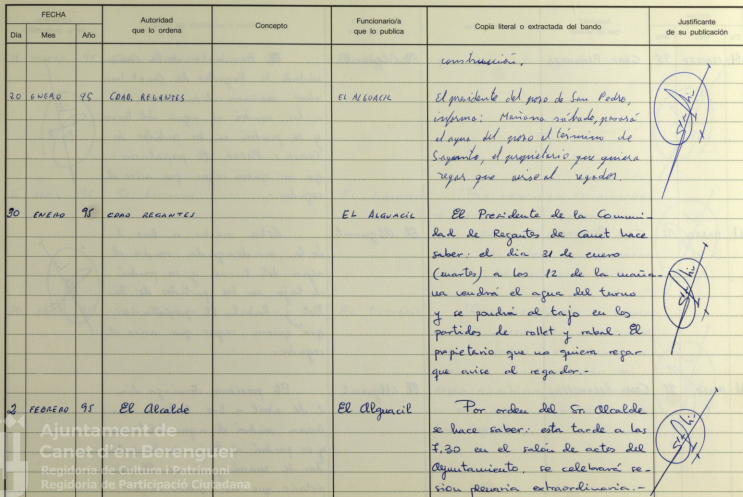 FECHA
Día Mes Año
Autoridad
que lo ordena
Concepto
Funcionario/a
que lo publica
Copia literal o extractada del bando
Justificante
de su publicación
construcción.
20 ENERO 95 CDAD. REGANTES EL ALGUACIL El presidente del pozo de San Pedro,
informa: Mañana sábado, pasará
el agua del pozo al término de
Sagunto, el propietario que quiera
regar que avise al regador.
30 ENERO 95 CDAD REGANTES EL ALGUACIL El Presidente de la Comuni-
dad de Regantes de Canet hace
saber: el dia 31 de enero
(martes) a las 12 de la maña-
na vendrá el agua del turno
y se pondrá al tajo en las
partidas de rollet y rabal. El
propietario que no quiera regar
que avise al regador.-
2 FEBRERO 95 El Alcalde El Alguacil Por orden del Sr. Alcalde
se hace saber: esta tarde a las
7.30 en el salón de actos del
Ayuntamiento, se celebrará se-
sion plenaria extraordinaria.-
Ajuntament de
Canet d'en Berenguer
Regidoria de Cultura i Patrimoni
Regidoria de Participació Ciutadana